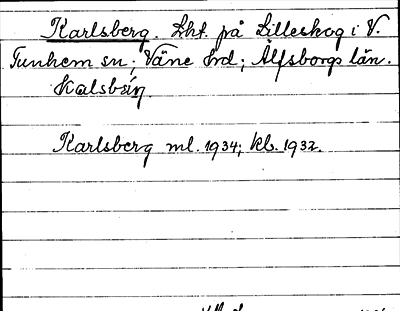 Karlsberg. Lht. på Lilleskog i V.
Tunhem sn; Väne hrd; Älfsborgs län.
Karlsberg ml. 1934; kl. 1932.